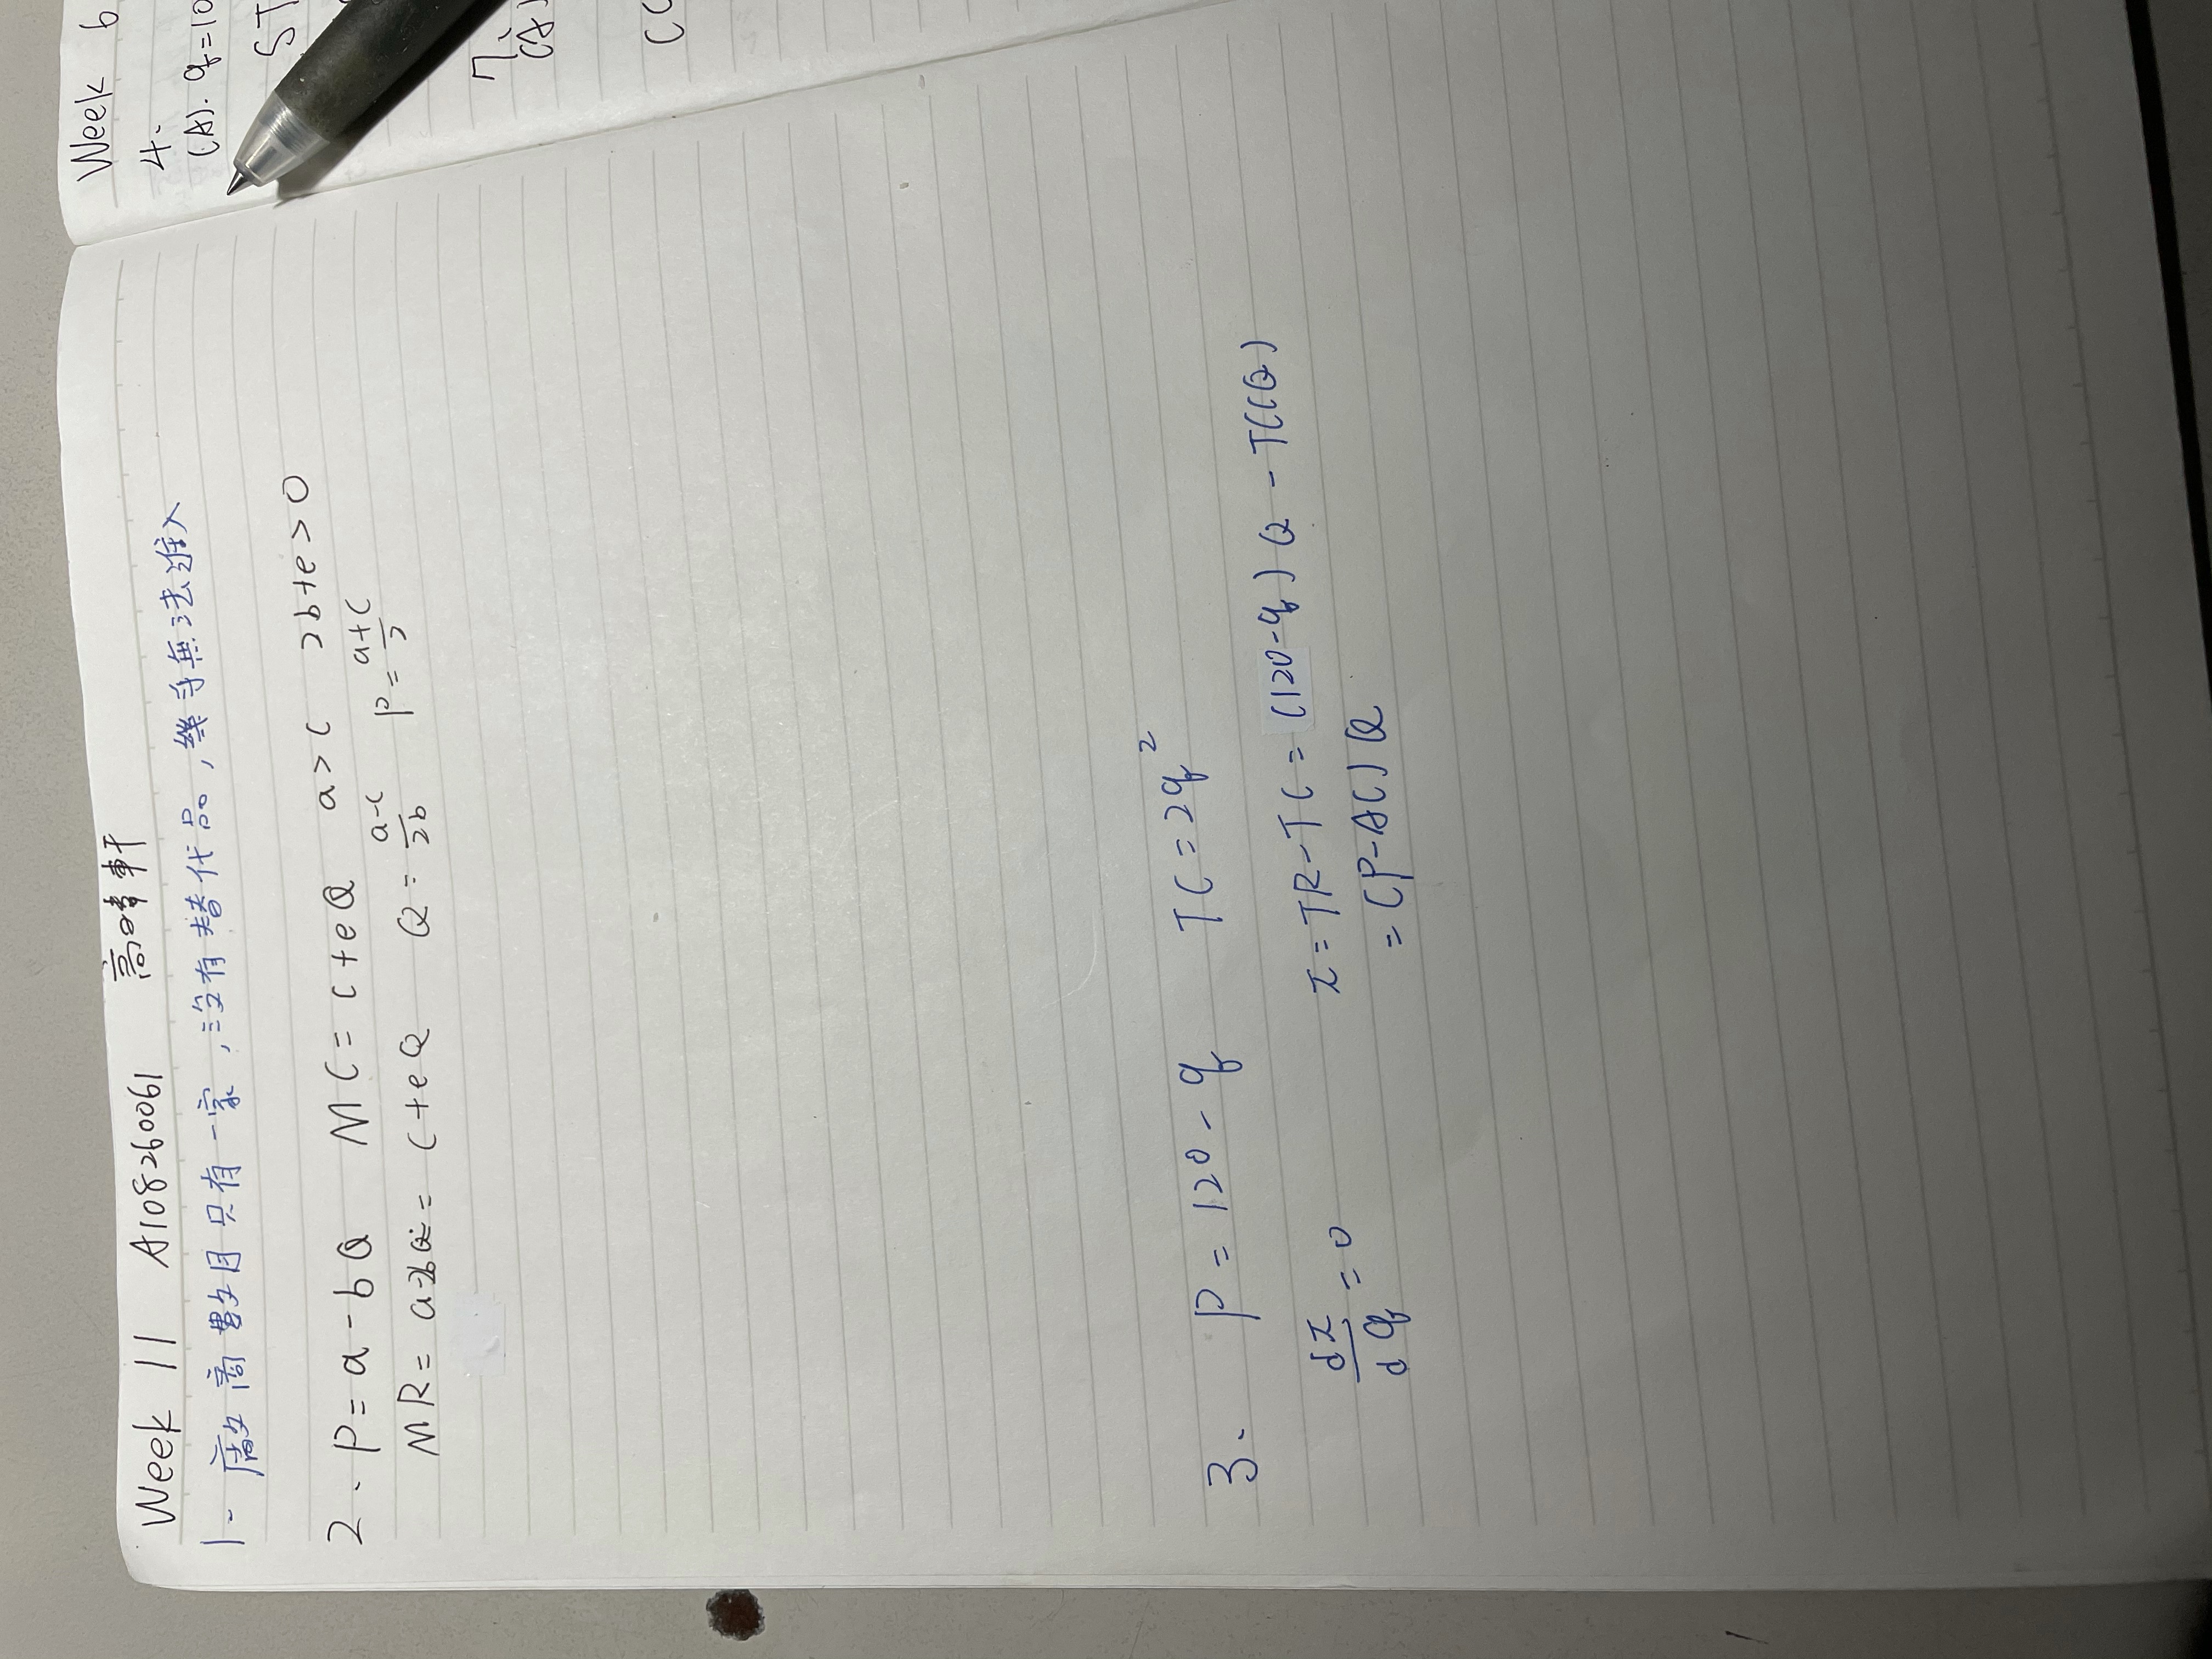 Week 11 A108260061 高晴軒
1. 廠商數目只有一家,沒有替代品,幾乎無法進入
2. P = a - bQ MC = c + eQ a > c 2b+e > 0
MR = a-2bQ = c + eQ Q = a-c/2b P = a+c/2
3. P = 120 - q TC = 2q²
dπ/dq = 0 π = TR - TC = (120-q) Q - TC(Q)
= (P-AC) Q
Week 6
4.
(A). q=10
ST
7.
(A)